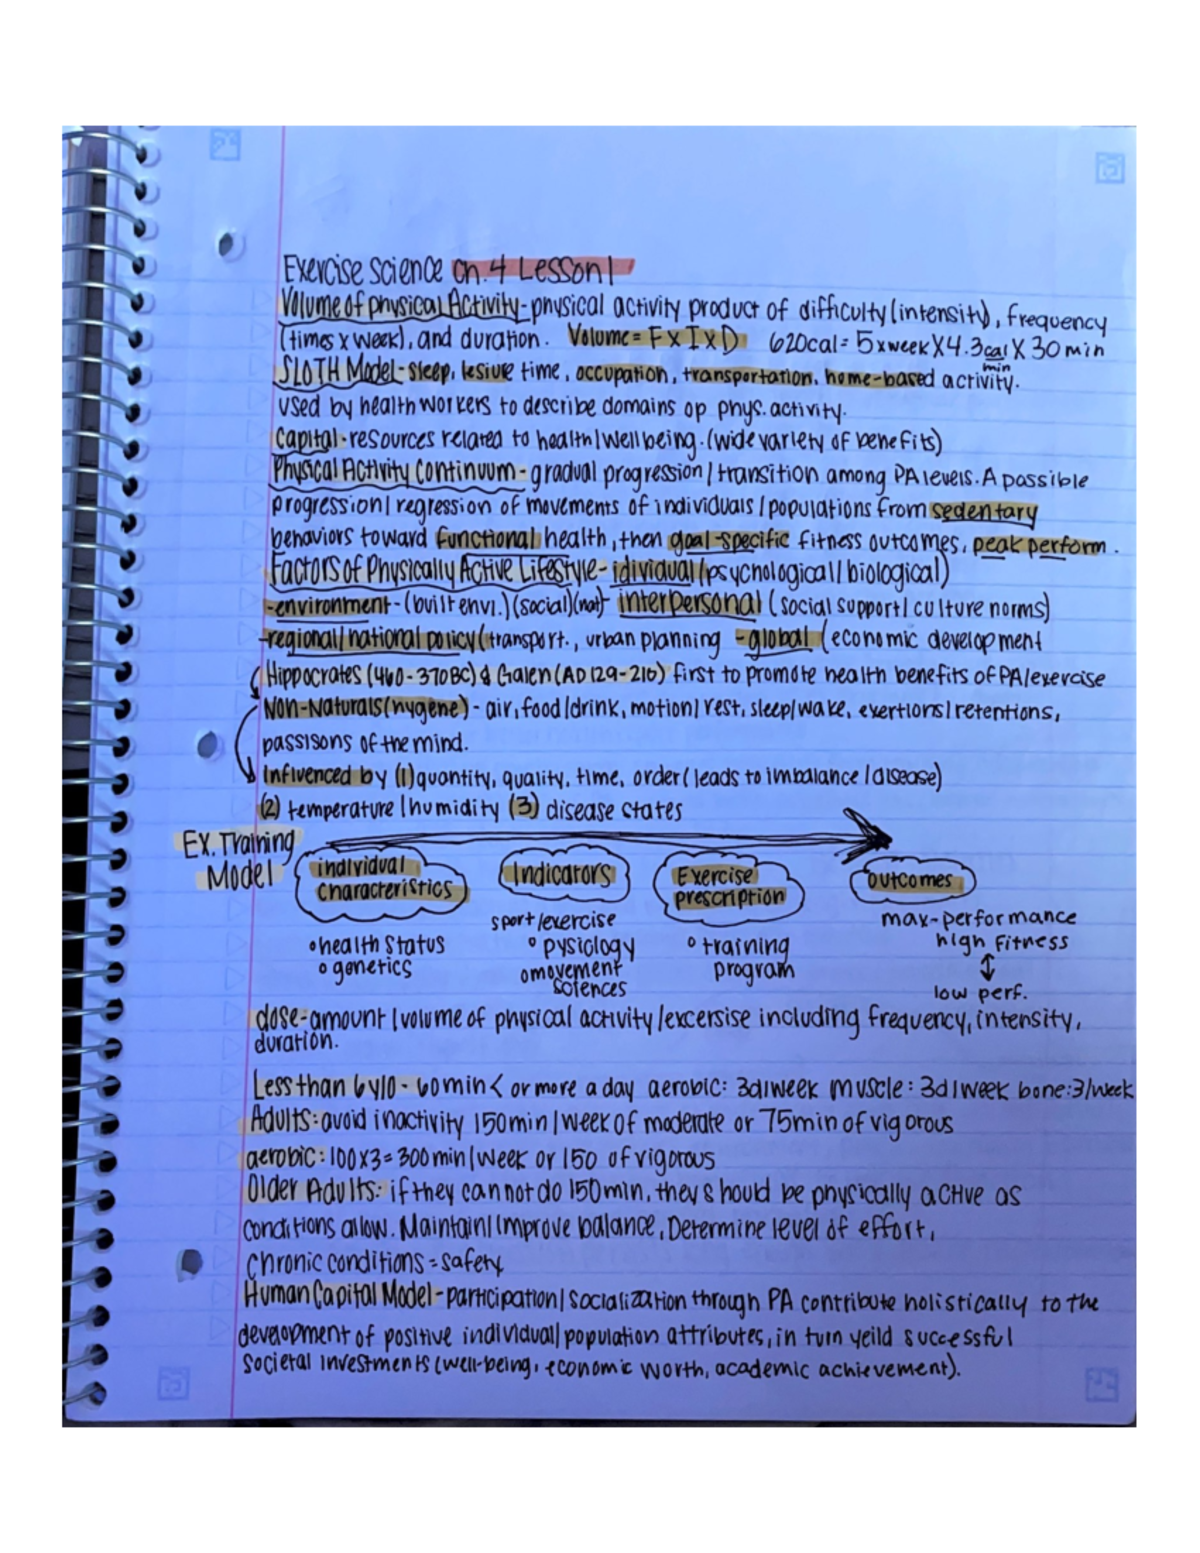 Exercise science ch.4 Lesson 1
Volume of physical Activity - physical activity product of difficulty (intensity), frequency
(times x week), and duration. Volume = F x I x D 620cal = 5xweek X 4.3 cal/min X 30 min
SLOTH Model - sleep, lesiure time, occupation, transportation, home-based activity.
used by health workers to describe domains op phys. activity.
Capital - resources related to health/well being. (wide variety of benefits)
Physical Activity Continuum - gradual progression/transition among PA levels. A possible
progression/regression of movements of individuals/populations from sedentary
behaviors toward functional health, then goal-specific fitness outcomes, peak perform.
Factors of Physically Active Lifestyle - idividual (psychological/biological)
-environment - (built envi.) (social) (nat) - interpersonal (social support/culture norms)
-regional/national policy (transport., urban planning - global (economic development
Hippocrates (460-370BC) & Galen (AD 129-216) first to promote health benefits of PA/exercise
Non-Naturals (hygene) - air, food/drink, motion/rest, sleep/wake, exertions/retentions,
passisons of the mind.
Influenced by (1) quantity, quality, time, order (leads to imbalance/disease)
(2) temperature/humidity (3) disease states
Ex. Training
Model
individual
characteristics
Indicators
Exercise
prescription
outcomes
°health status
°genetics
sport/exercise
° pysiology
°movement
sciences
° training
program
max-performance
high fitness
↕
low perf.
dose - amount/volume of physical activity/excersise including frequency, intensity,
duration.
Less than 6 y/o - 60min < or more a day aerobic: 3d/week muscle: 3d/week bone: 3/week
Adults: avoid inactivity 150min/week of moderate or 75min of vigorous
aerobic: 100x3=300min/week or 150 of vigorous
Older Adults: if they cannot do 150min, they should be physically active as
conditions allow. Maintain/improve balance, Determine level of effort,
chronic conditions = safety
Human Capital Model - participation/socialization through PA contribute holistically to the
development of positive individual/population attributes, in turn yeild successful
societal investments (well-being, economic worth, academic achievement).